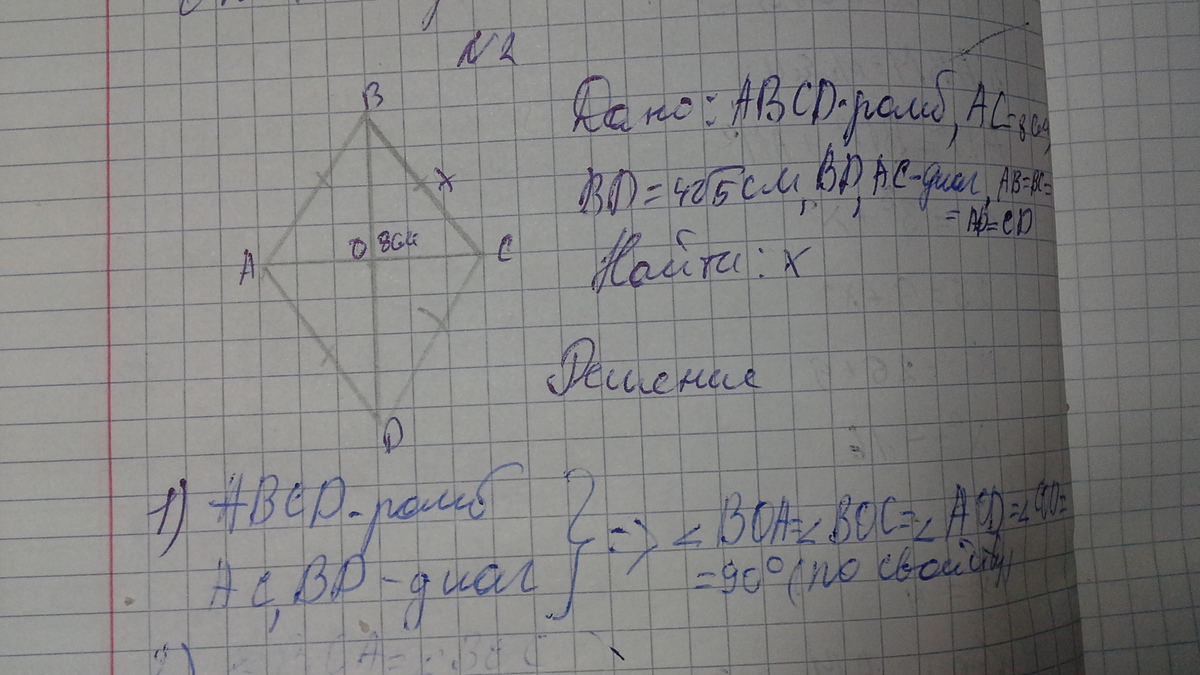 N 2
B
x
Дано: ABCD-ромб, AC=8см
BD=4√5 см, BD, AC-диаг, AB=BC=
=AD=CD
A
O 8см
C
Найти: x
Решение
D
1) ABCD-ромб
AC, BD-диаг
} => ∠BOA=∠BOC=∠AOD=∠COD=
=90° (по свойству)
2)